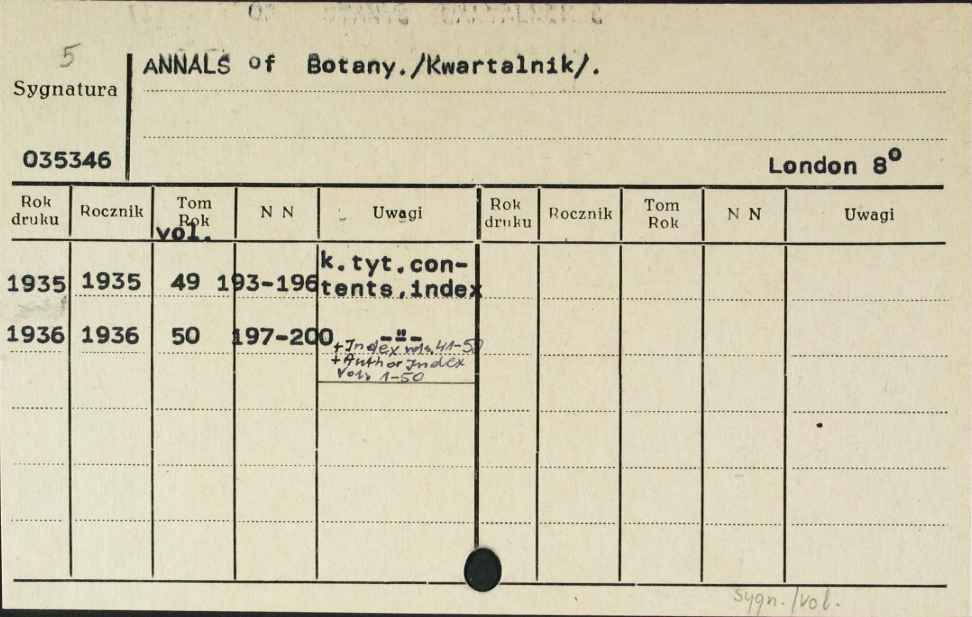 5
ANNALS of Botany./Kwartalnik/.
Sygnatura
035346
London 8º
Rok druku Rocznik Tom Rok N N Uwagi Rok druku Rocznik Tom Rok N N Uwagi
vol.
1935 1935 49 193-196 k.tyt.con-
tents,index
1936 1936 50 197-200 -"-
+Index vols. 41-50
+Author Index
Vols 1-50
Sygn./vol.